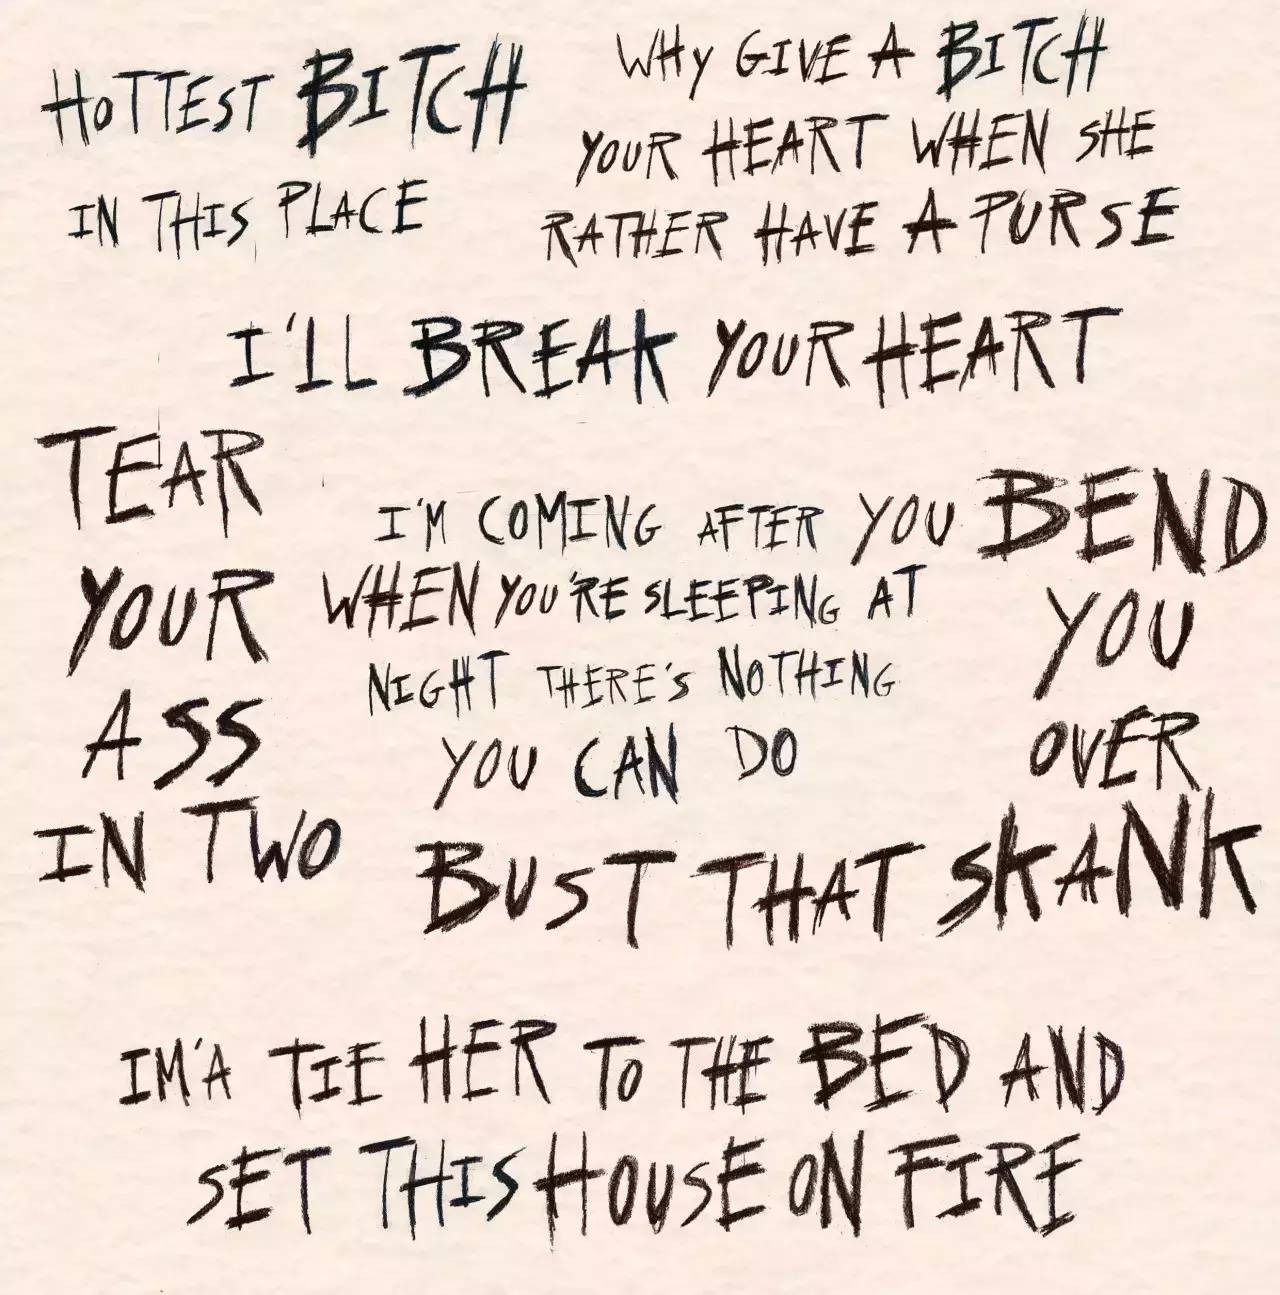 HOTTEST BITCH
IN THIS PLACE
WHY GIVE A BITCH
YOUR HEART WHEN SHE
RATHER HAVE A PURSE
I'LL BREAK YOUR HEART
TEAR
YOUR
ASS
IN TWO
I'M COMING AFTER YOU
WHEN YOU'RE SLEEPING AT
NIGHT THERE'S NOTHING
YOU CAN DO
BEND
YOU
OVER
BUST THAT SKANK
IM'A TIE HER TO THE BED AND
SET THIS HOUSE ON FIRE